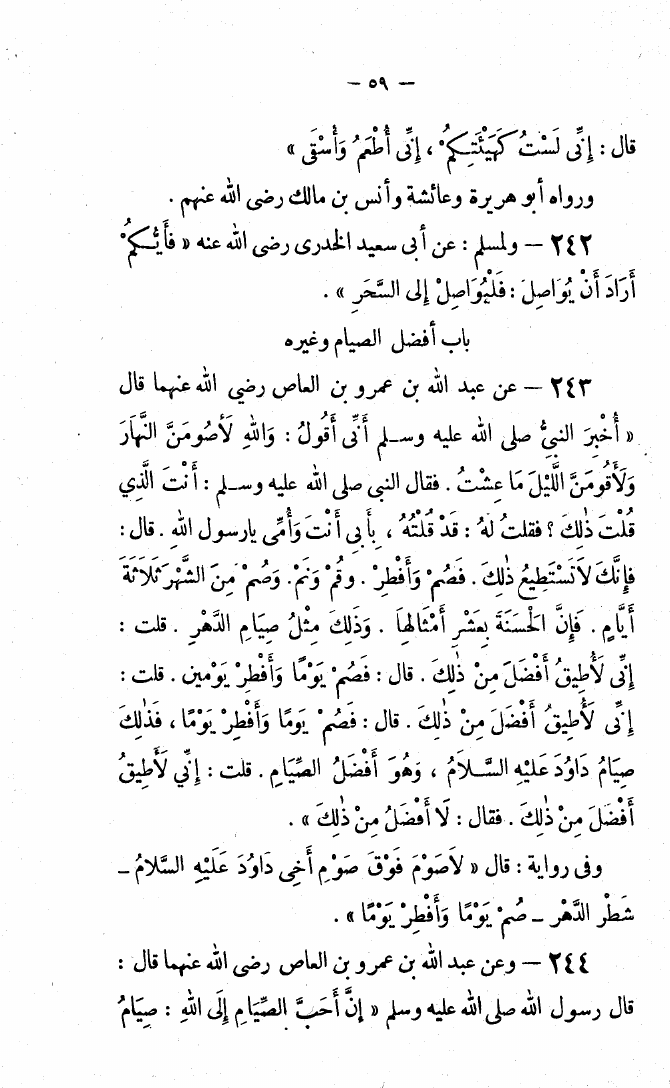 — ٥٩ —
قال : إِنِّى لَسْتُ كَهَيْئَتِكُمْ ، إِنِّى أُطْعَمُ وَأُسْقَى »
ورواه أبو هريرة وعائشة وأنس بن مالك رضى الله عنهم .
٢٤٢ – ولمسلم : عن أبى سعيد الخدرى رضى الله عنه « فَأَيُّكُمْ
أَرَادَ أَنْ يُوَاصِلَ : فَلْيُوَاصِلْ إلى السَّحَرِ » .
باب أفضل الصيام وغيره
٢٤٣ – عن عبد الله بن عمرو بن العاص رضي الله عنهما قال
« أُخْبِرَ النبيُّ صلى الله عليه وسلم أَنِّى أَقُولُ : وَاللهِ لَأَصُومَنَّ النَّهَارَ
وَلَأَقُومَنَّ اللَّيْلَ مَا عِشْتُ . فقال النبى صلى الله عليه وسلم : أَنْتَ الَّذِي
قُلْتَ ذٰلِكَ ؟ فقلتُ لهُ : قَدْ قُلْتُهُ ، بِأَبِى أَنْتَ وَأُمِّى يارسول اللهِ . قال :
فإِنَّكَ لاَتَسْتَطِيعُ ذٰلِكَ . فَصُمْ وَأَفْطِرْ . وَقُمْ وَنَمْ . وَصُمْ مِنَ الشَّهْرِ ثَلاَثَةَ
أَيَّامٍ . فَإِنَّ الْحَسَنَةَ بِعَشْرِ أَمْثَالِهَا . وَذٰلِكَ مِثْلُ صِيَامِ الدَّهْرِ . قلت :
إِنِّى لَأُطِيقُ أَفْضَلَ مِنْ ذٰلِكَ . قال : فَصُمْ يَوْمًا وَأَفْطِرْ يَوْمين . قلت :
إِنِّى لَأُطِيقُ أَفْضَلَ مِنْ ذٰلِكَ . قال : فَصُمْ يَومًا وَأَفْطِرْ يَوْمًا ، فَذٰلِكَ
صِيَامُ دَاوُدَ عَلَيْهِ السَّلاَمُ ، وَهُوَ أَفْضَلُ الصِّيَامِ . قلت : إِنِّي لَأُطِيقُ
أَفْضَلَ مِنْ ذٰلِكَ . فقال : لَا أَفْضَلُ مِنْ ذٰلِكَ » .
وفى رواية : قال « لاَصَوْمَ فَوْقَ صَوْمِ أَخِى دَاوُدَ عَلَيْهِ السَّلاَمُ –
شَطْرِ الدَّهْرِ – صُمْ يَوْمًا وَأَفْطِرْ يَوْمًا » .
٢٤٤ – وعن عبد الله بن عمرو بن العاص رضى الله عنهما قال :
قال رسول الله صلى الله عليه وسلم « إنَّ أَحَبَّ الصِّيَامِ إِلَى اللهِ : صِيَامُ